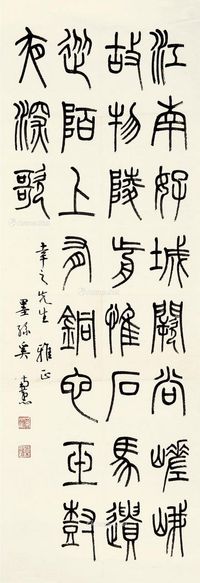 江南好城闕尚嵯峨
故物陵前惟石馬遺
從陌上有銅它玉尌
夜深歌
幸之先生 雅正
墨孫吳